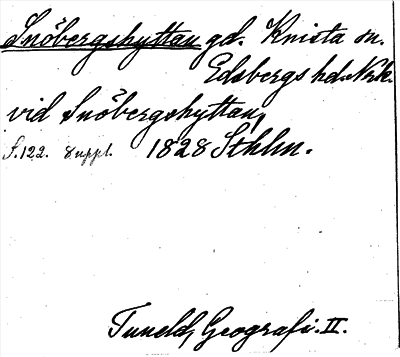 Snöbergshyttan gd. Knista sn.
Edsbergs hd. Nrk.
vid Snöbergshyttan,
S. 122. 8 uppl. 1828 Sthlm.
Tuneld, Geografi. II.